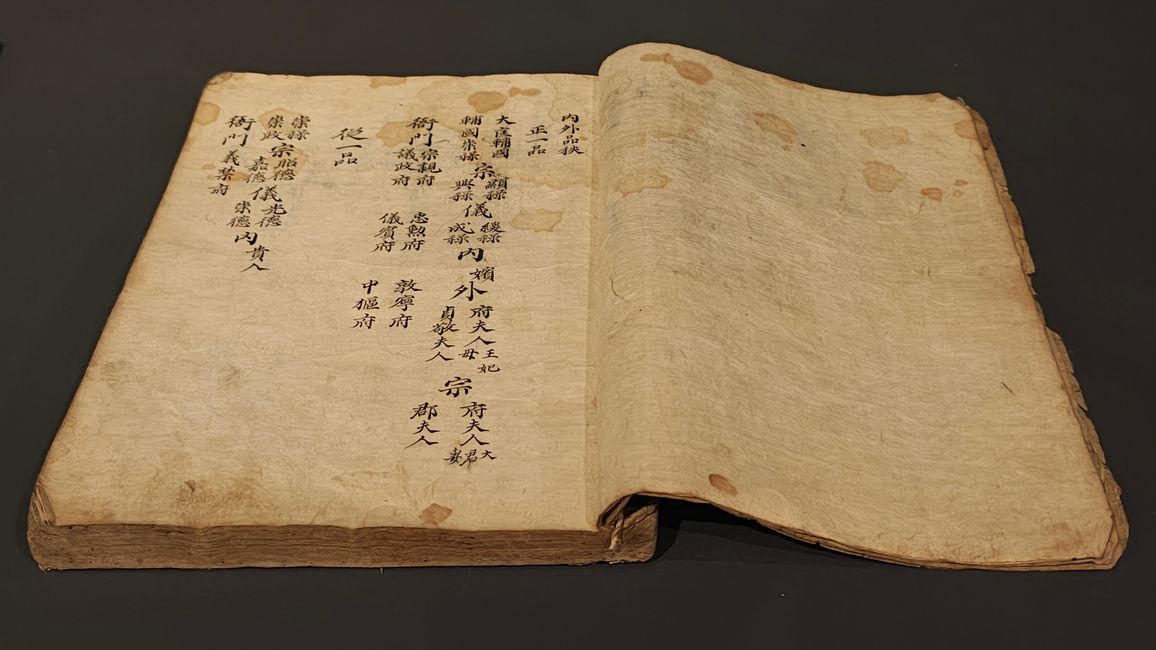 内外品秩
正一品
大匡輔國
輔國崇祿
宗
顯祿
興祿
儀
綏祿
成祿
内
嬪
外
府夫人 王妃母
貞敬夫人
宗
府夫人 大君妻
郡夫人
衙門
宗親府
議政府
忠勲府
儀賓府
敦寧府
中樞府
從一品
崇祿
崇政
宗
昭德
嘉德
儀
光德
崇德
内
貴人
衙門
義禁府